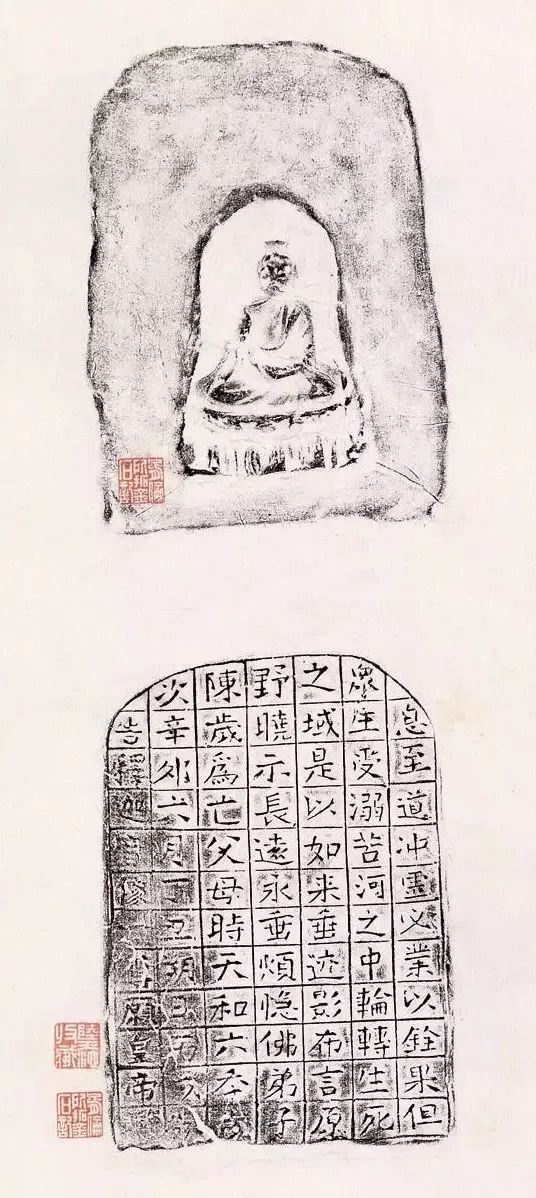 息至道冲靈必業以銓果但
衆生受溺苦河之中輪轉生死
之域是以如来垂迹影布言原
野曉示長遠永垂煩惚佛弟子
陳歲爲亡父母時天和六年
次辛夘六月丁丑朔
告釋迦像願皇帝